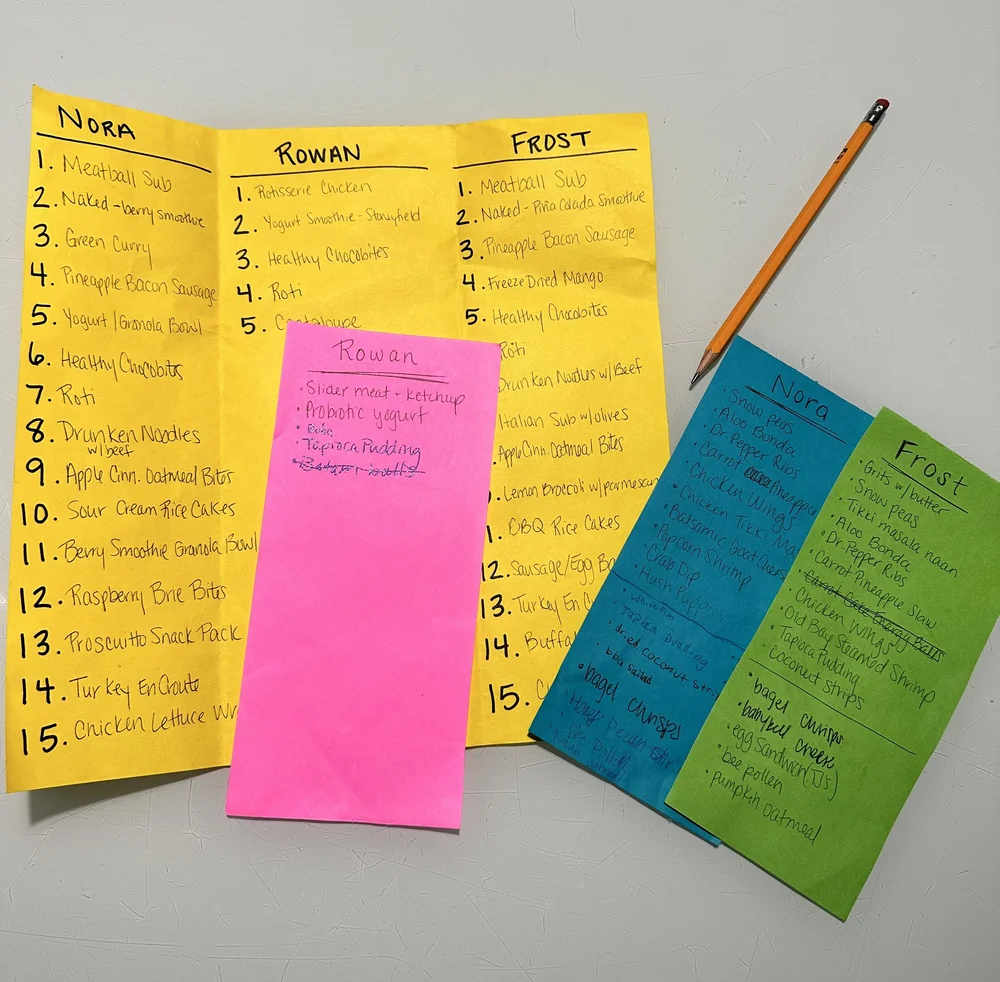 NORA
1. Meatball Sub
2. Naked-berry smoothie
3. Green Curry
4. Pineapple Bacon Sausage
5. Yogurt/Granola Bowl
6. Healthy Chocobits
7. Roti
8. Drunken Noodles
w/beef
9. Apple Cinn. Oatmeal Bites
10. Sour Cream Rice Cakes
11. Berry Smoothie Granola Bowl
12. Raspberry Brie Bites
13. Proscuitto Snack Pack
14. Turkey EnCroute
15. Chicken Lettuce Wr
ROWAN
1. Rotisserie Chicken
2. Yogurt Smoothie-Stoneyfield
3. Healthy Chocobites
4. Roti
5. Cantaloupe
FROST
1. Meatball Sub
2. Naked-Piña Colada Smoothie
3. Pineapple Bacon Sausage
4. Freeze Dried Mango
5. Healthy Chocobites
Roti
Drunken Noodles w/Beef
Italian Sub w/olives
Apple Cinn. Oatmeal Bites
Lemon Broccoli w/parmesan
1. BBQ Rice Cakes
12. Sausage/Egg Ba
13. Turkey En C
14. Buffa
15. C
Rowan
• Slider meat + ketchup
• Probiotic yogurt
• Tapioca Pudding
Nora
• Snow peas
• Aloo Bonda
• Dr. Pepper Ribs
• Carrot Pineapple
• Chicken Wings
• Chicken Tikki Ma
• Balsamic Goat Chees
• Popcorn Shrimp
• Crab Dip
• Hush Puppies
• Tapioca Pudding
• dried coconut strip
• bbq salad
• bagel chrisps
• Bee Pollen
Frost
• Grits w/butter
• Snow peas
• Tikki masala naan
• Aloo Bonda
• Dr. Pepper Ribs
• Carrot Pineapple Slaw
• Carrot Cake Energy Balls
• Chicken Wings
• Old Bay Steamed Shrimp
• Tapioca Pudding
• coconut strips
• bagel chrisps
• babybell cheese
• egg sandwich (TJs)
• bee pollen
• pumpkin oatmeal